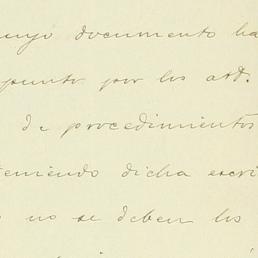 cuyo documento ha
punto por los art.
de procedimientos
teniendo dicha escri
no se deben los